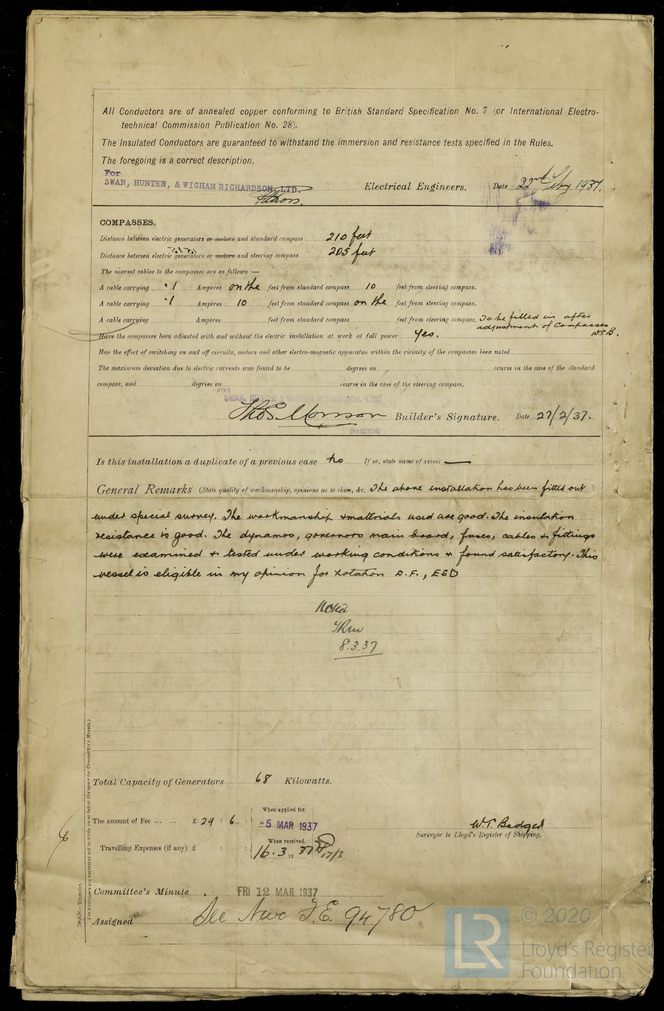 All Conductors are of annealed copper conforming to British Standard Specification No. 7 (or International Electro-
technical Commission Publication No. 28).
The Insulated Conductors are guaranteed to withstand the immersion and resistance tests specified in the Rules.
The foregoing is a correct description.
For
SWAN, HUNTER, & WIGHAM RICHARDSON, LTD.
Electrical Engineers. Date 22nd Feby 1937.
COMPASSES.
Distance between electric generators or motors and standard compass 210 feet
Distance between electric generators or motors and steering compass 205 feet
The nearest cables to the compasses are as follows:—
A cable carrying .1 Ampères on the feet from standard compass 10 feet from steering compass.
A cable carrying .1 Ampères 10 feet from standard compass on the feet from steering compass.
A cable carrying Ampères feet from standard compass feet from steering compass. To be filled in after
adjustment of Compasses
W.T.B.
Have the compasses been adjusted with and without the electric installation at work at full power Yes.
Has the effect of switching on and off circuits, motors and other electro-magnetic apparatus within the vicinity of the compasses been noted
The maximum deviation due to electric currents was found to be degrees on course in the case of the standard
compass, and degrees on course in the case of the steering compass.
Thos Morrison Builder's Signature. Date 27/2/37.
Is this installation a duplicate of a previous case No If so, state name of vessel —
General Remarks (State quality of workmanship, opinions as to class, &c. The above installation has been fitted out)
under special survey. The workmanship & materials used are good. The insulation
resistance is good. The dynamos, governors main board, fuses, cables & fittings
were examined & tested under working conditions & found satisfactory. This
vessel is eligible in my opinion for notation D.F., ESD
Noted
8.3.37
Total Capacity of Generators 68 Kilowatts.
The amount of Fee ... ... £ 29 : 6 :
When applied for,
-5 MAR 1937
When received,
Travelling Expenses (if any) £ : :
16.3.1937 17/3
W.T. Badger
Surveyor to Lloyd's Register of Shipping.
Committee's Minute FRI 12 MAR 1937
Assigned See Nwc F.E. 94780
LR
© 2020
Lloyd's Register
Foundation